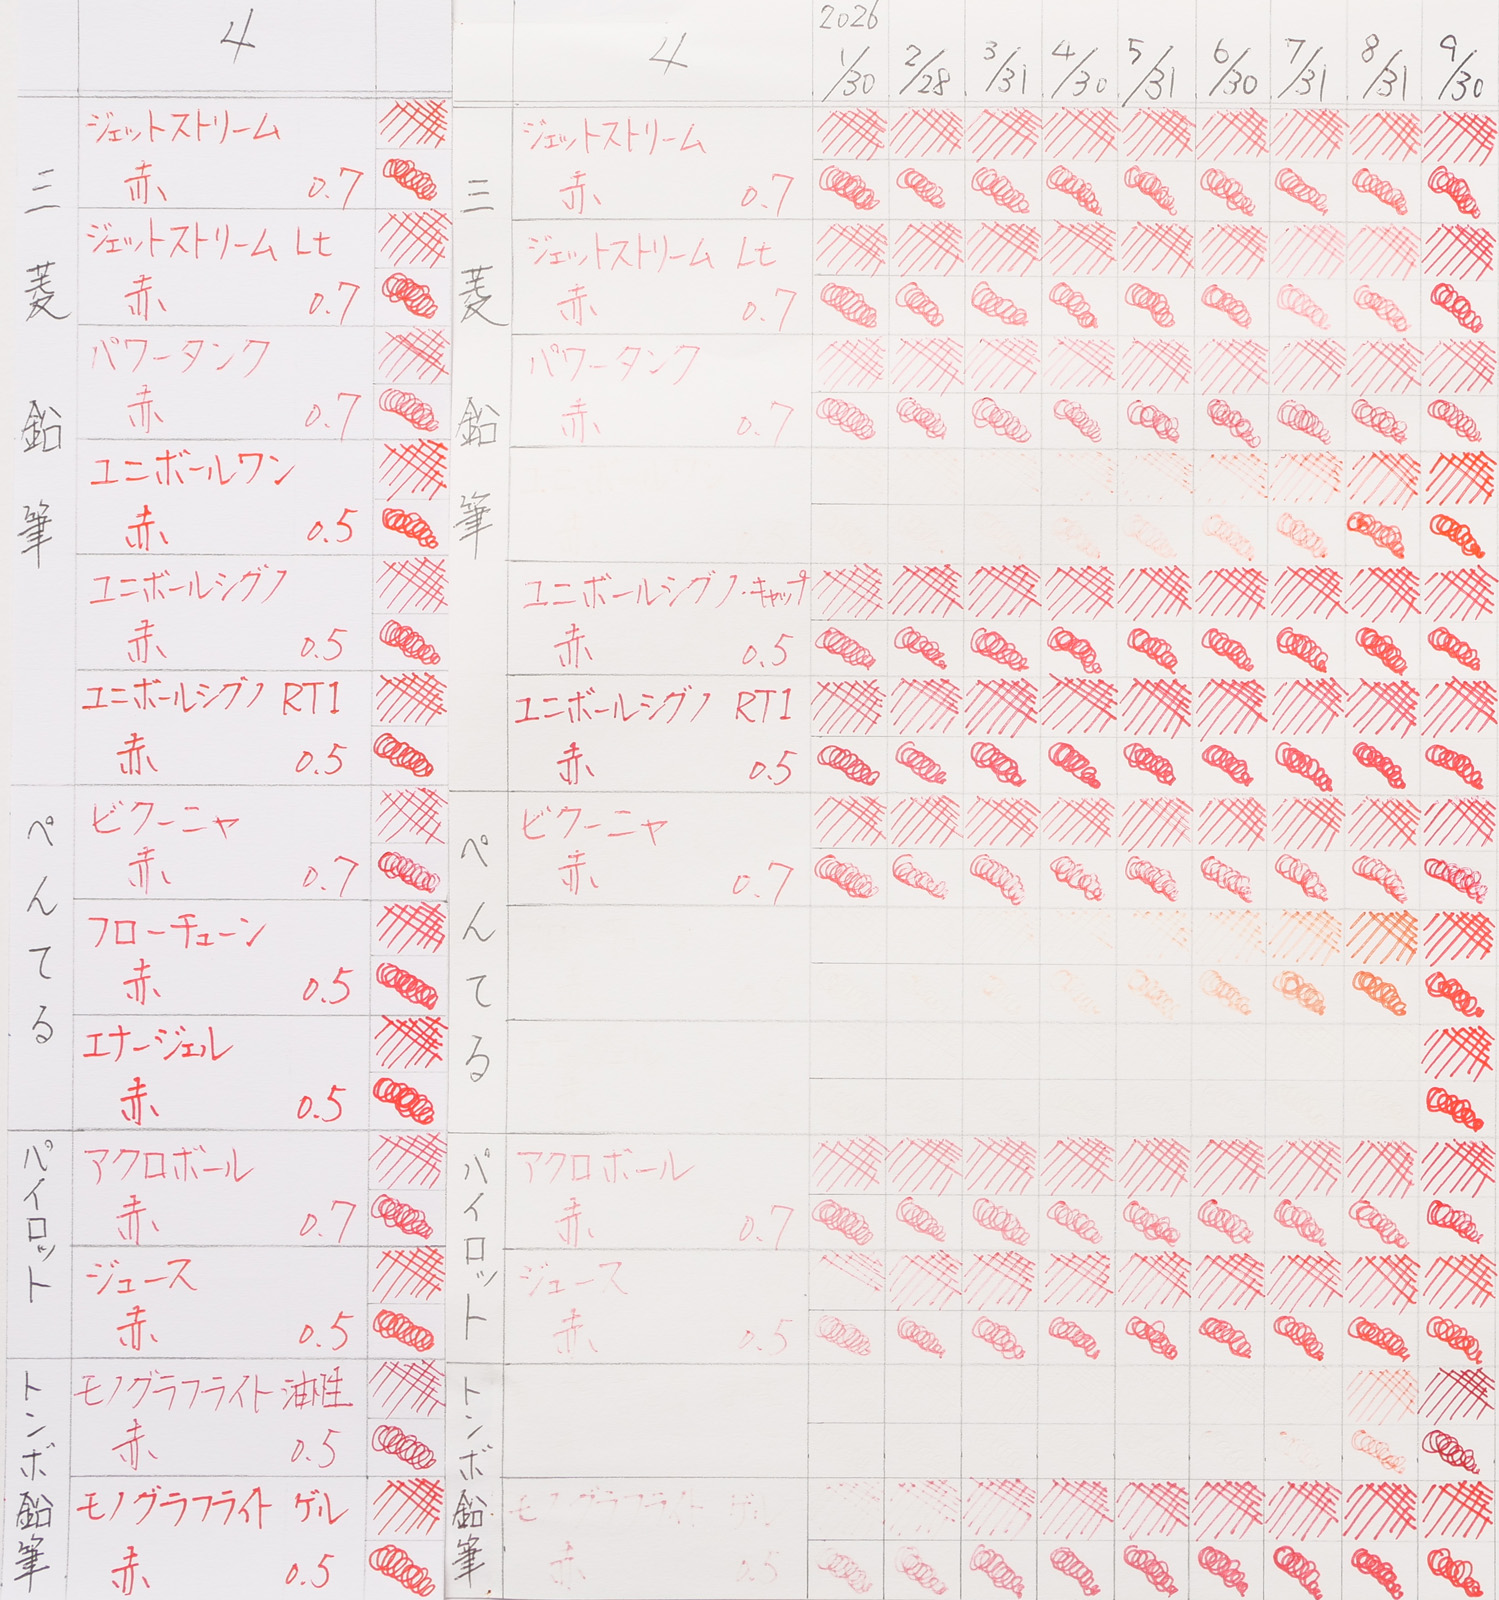 4
三菱鉛筆
ジェットストリーム
赤 0.7
ジェットストリーム Lt
赤 0.7
パワータンク
赤 0.7
ユニボールワン
赤 0.5
ユニボールシグノ
赤 0.5
ユニボールシグノ RT1
赤 0.5
ぺんてる
ビクーニャ
赤 0.7
フローチューン
赤 0.5
エナージェル
赤 0.5
パイロット
アクロボール
赤 0.7
ジュース
赤 0.5
トンボ鉛筆
モノグラフライト油性
赤 0.5
モノグラフライト ゲル
赤 0.5
4
2026
1/30 2/28 3/31 4/30 5/31 6/30 7/31 8/31 9/30
三菱鉛筆
ジェットストリーム
赤 0.7
ジェットストリーム Lt
赤 0.7
パワータンク
赤 0.7
ユニボールシグノ・キャップ
赤 0.5
ユニボールシグノ RT1
赤 0.5
ぺんてる
ビクーニャ
赤 0.7
パイロット
アクロボール
赤 0.7
ジュース
赤 0.5
トンボ鉛筆
モノグラフライト ゲル
赤 0.5